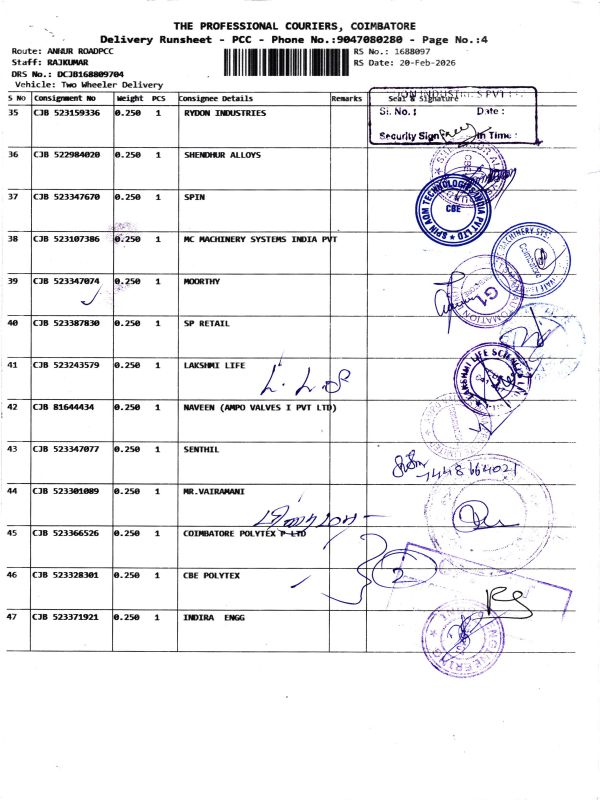 THE PROFESSIONAL COURIERS, COIMBATORE
Delivery Runsheet - PCC - Phone No.:9047080280 - Page No.:4
Route: ANNUR ROADPCC RS No.: 1688097
Staff: RAJKUMAR RS Date: 20-Feb-2026
DRS No.: DCJB168809704
Vehicle: Two Wheeler Delivery
S No Consignment No Weight PCS Consignee Details Remarks Seal & Signature
35 CJB 523159336 0.250 1 RYDON INDUSTRIES
Sl. No. : Date :
Security Sign In Time :
36 CJB 522984020 0.250 1 SHENDHUR ALLOYS
37 CJB 523347670 0.250 1 SPIN
SPIN AOM TECHNOLOGIES INDIA PVT LTD CBE
38 CJB 523107386 0.250 1 MC MACHINERY SYSTEMS INDIA PVT
Coimbatore
39 CJB 523347074 0.250 1 MOORTHY
40 CJB 523387830 0.250 1 SP RETAIL
41 CJB 523243579 0.250 1 LAKSHMI LIFE
LAKSHMI LIFE SCIENCES
42 CJB 81644434 0.250 1 NAVEEN (AMPO VALVES I PVT LTD)
43 CJB 523347077 0.250 1 SENTHIL
44 CJB 523301089 0.250 1 MR.VAIRAMANI
45 CJB 523366526 0.250 1 COIMBATORE POLYTEX P LTD
46 CJB 523328301 0.250 1 CBE POLYTEX
2
47 CJB 523371921 0.250 1 INDIRA ENGG